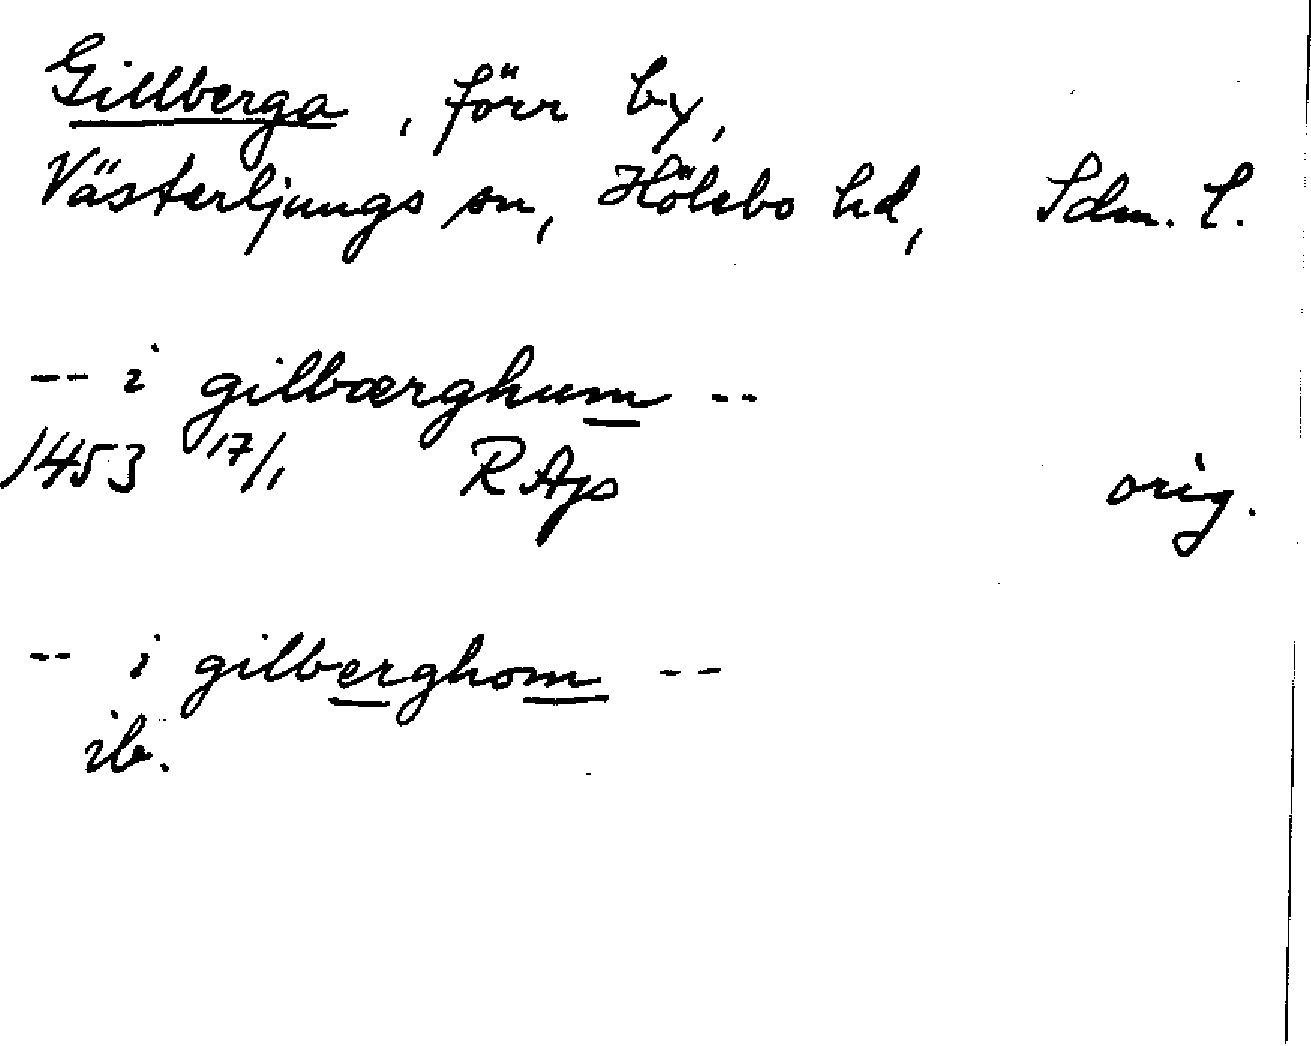 Gillberga, förr by,
Västerljungs sn, Hölebo hd, Sdm. l.
-- i gilbærghum --
1453 17/1 RAp orig.
-- i gilberghom --
ib.